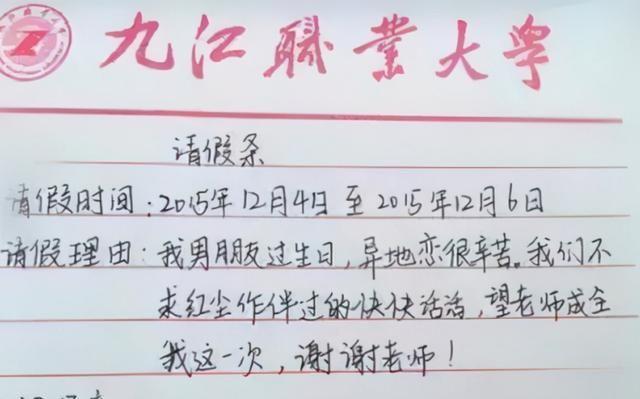 九江职业大学
请假条
请假时间：2015年12月4日至2015年12月6日
请假理由：我男朋友过生日，异地恋很辛苦。我们不
求红尘作伴过的快快活活，望老师成全
我这一次，谢谢老师！